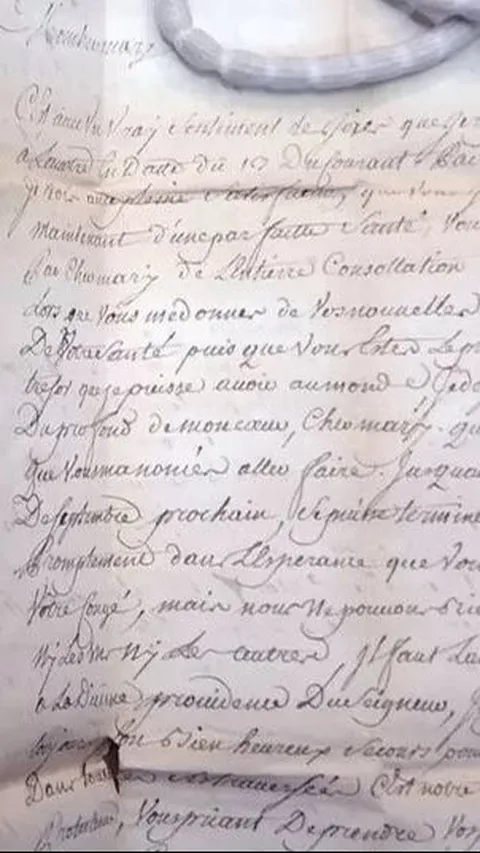 C'est avec un vray sentiment de que je
a la votre en Datte du 17 Du Courant
je vois avec pleine satisfaction, que vous
maintenant d'une parfaitte Santé, vou
Cher mary de L'entierre Consollation
Lors que vous me donner de vos nouvelles
De Votre Santé puis que vous Estes Le
tresor que je puisse avoir au mond
Du profond de mon cœur, Cher mary. qu
que vous m'anoncér aller faire. Jusqua
De septembre prochain, termine
Promptement dans L'Esperance que vou
Votre Congé, mais nous Ne pouvons rie
Ny Les uns Ny Les autres, Jl faut
a La Divine providence Du Seigneur,
toujours Son Bien heureux secours pour
Dans toutes nos traversées C'est notre
, Vous priant De prendre Vos